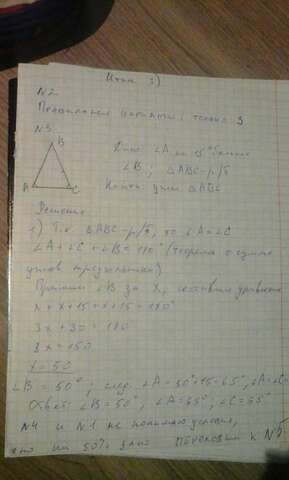 N2
Правильные варианты: только 3
N3
B
Дано ∠A на 15° больше
∠B; △ABC-р/б
A C
Найти углы △ABC
Решение
1) Т.к △ABC-р/б, то ∠A=∠C
∠A+∠C+∠B=180° (теорема о сумме
углов треугольника)
Примем ∠B за x, составим уравнение
x+x+15+x+15=180°
3x+30=180
3x=150
x=50
∠B=50°; след. ∠A=50+15=65°, ∠A=∠C
Ответ: ∠B=50°, ∠A=65°, ∠C=65°
N4 и N1 не понимаю условия,
но на 50% дано к N5